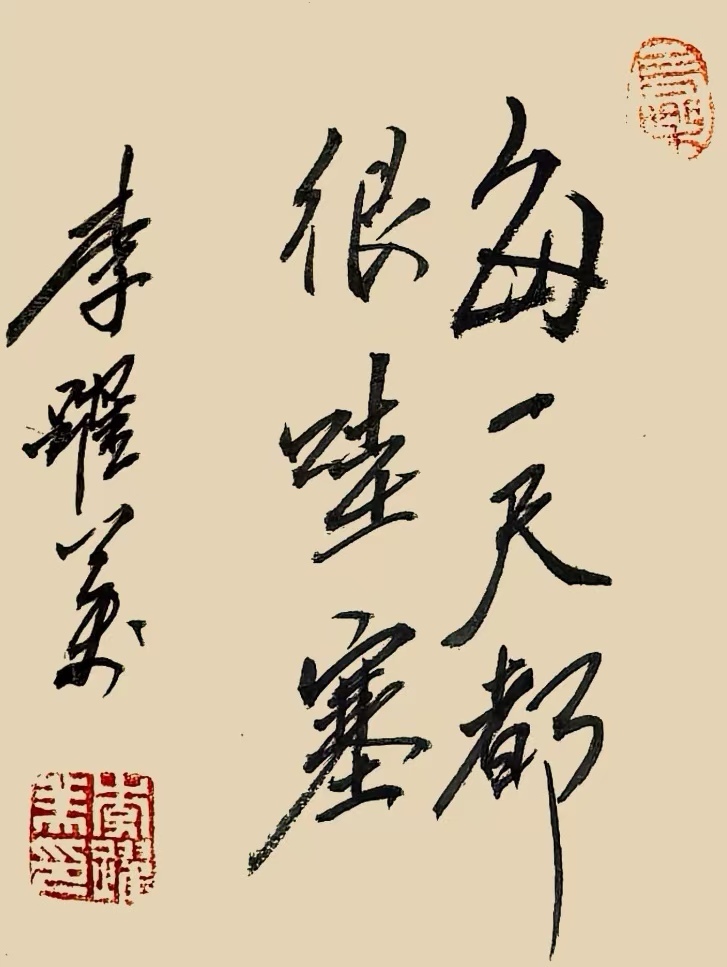 每一天都
很哇塞
李躍美